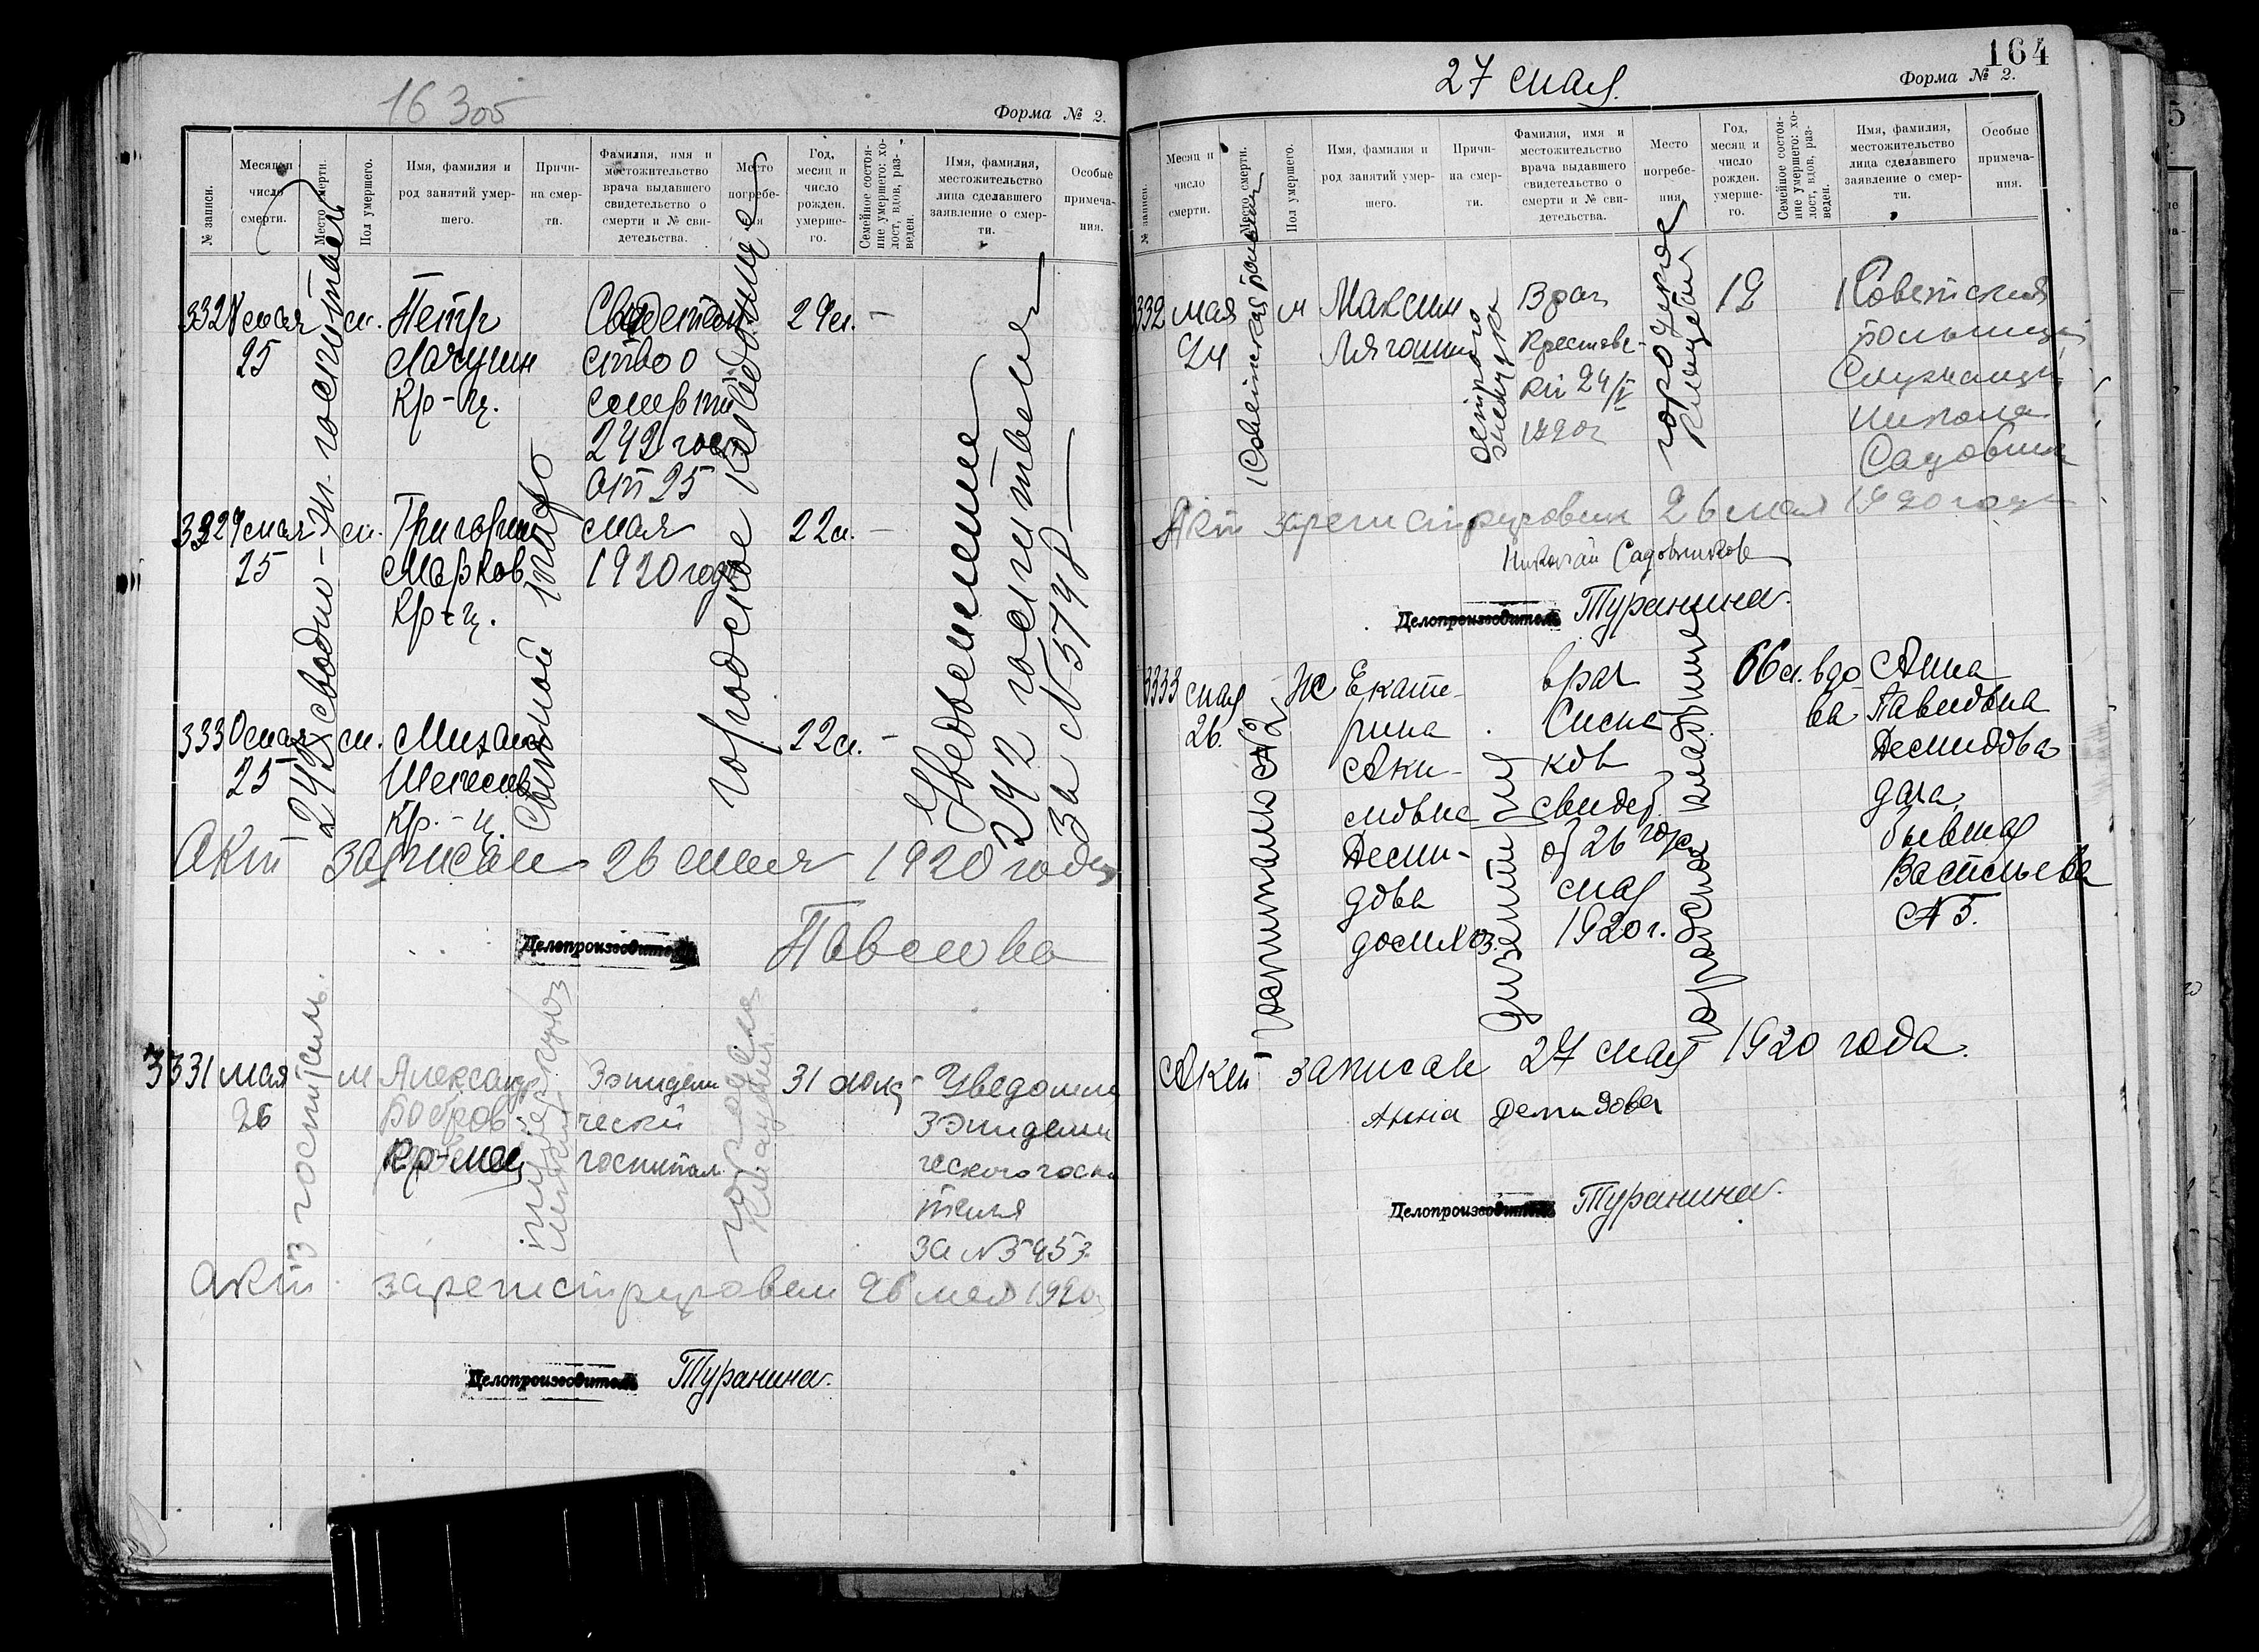 16 Зоб
Форма № 2.
№ записи.
Месяц и число смерти.
Место смерти.
Пол умершего.
Имя, фамилия и род занятий умершего.
Причина смерти.
Фамилия, имя и местожительство врача выдавшего свидетельство о смерти и № свидетельства.
Место погребения
Год, месяц и число рожден. умершего.
Семейное состояние умершего: холост, вдов, разведен.
Имя, фамилия, местожительство лица сделавшего заявление о смерти.
Особые примечания.
3328 мая 25
242 сводно-эв. госпиталь
м.
Петр
Кр-ц.
Сыпной тиф
Свидетель
ство о
смерти
242 гос
от 25
мая
1920 года
городское кладбище
24л. -
Уведомление
242 госпиталя
за № 5748
3329 мая 25
м.
Григорий
Марков
Кр-ц.
22л. -
3330 мая 25
м.
Михаил
Кр.-ц.
22л. -
Акт записан 26 мая 1920 года
Делопроизводитель Павлова
3331 мая
26
3 госпиталь.
м Александр
Бобров
Кр-мец
3 эпидеми
ческий
госпитал
городское
кладбище
31
Уведомлен
3 Эпидеми
ческого госпи
таля
за № 5453
Акт зарегистрирован 26 мая 1920г
Делопроизводитель Туранина.
27 мая.
164
Форма № 2.
№ записи.
Месяц и число смерти.
Место смерти.
Пол умершего.
Имя, фамилия и род занятий умершего.
Причина смерти.
Фамилия, имя и местожительство врача выдавшего свидетельство о смерти и № свидетельства.
Место погребения
Год, месяц и число рожден. умершего.
Семейное состояние умершего: холост, вдов, разведен.
Имя, фамилия, местожительство лица сделавшего заявление о смерти.
Особые примечания.
3332 мая
24
1 Советская больниц
м Максим
Врач
Крестовс-
кий 24/V
1920г
городское
кладбище
19
1 Советская
больница
Служащий
Никола
Садовник
Акт зарегистрирован 26 мая 1920 года
Николай Садовников
Делопроизводитель Туранина.
3333 мая
26.
госпиталь № 2
ж Екате-
рина
Аки-
мовна
Деми-
дова
домхоз.
Дизентерия
врач
свидет.
от 26
мая
1920 г.
городское кладбище
66л. вдо
ва
Анна
Павловна
Демидова
дача
бывшая
Васильева
№ 5.
Акт записан 27 мая 1920 года.
Анна Демидова
Делопроизводитель Туранина.